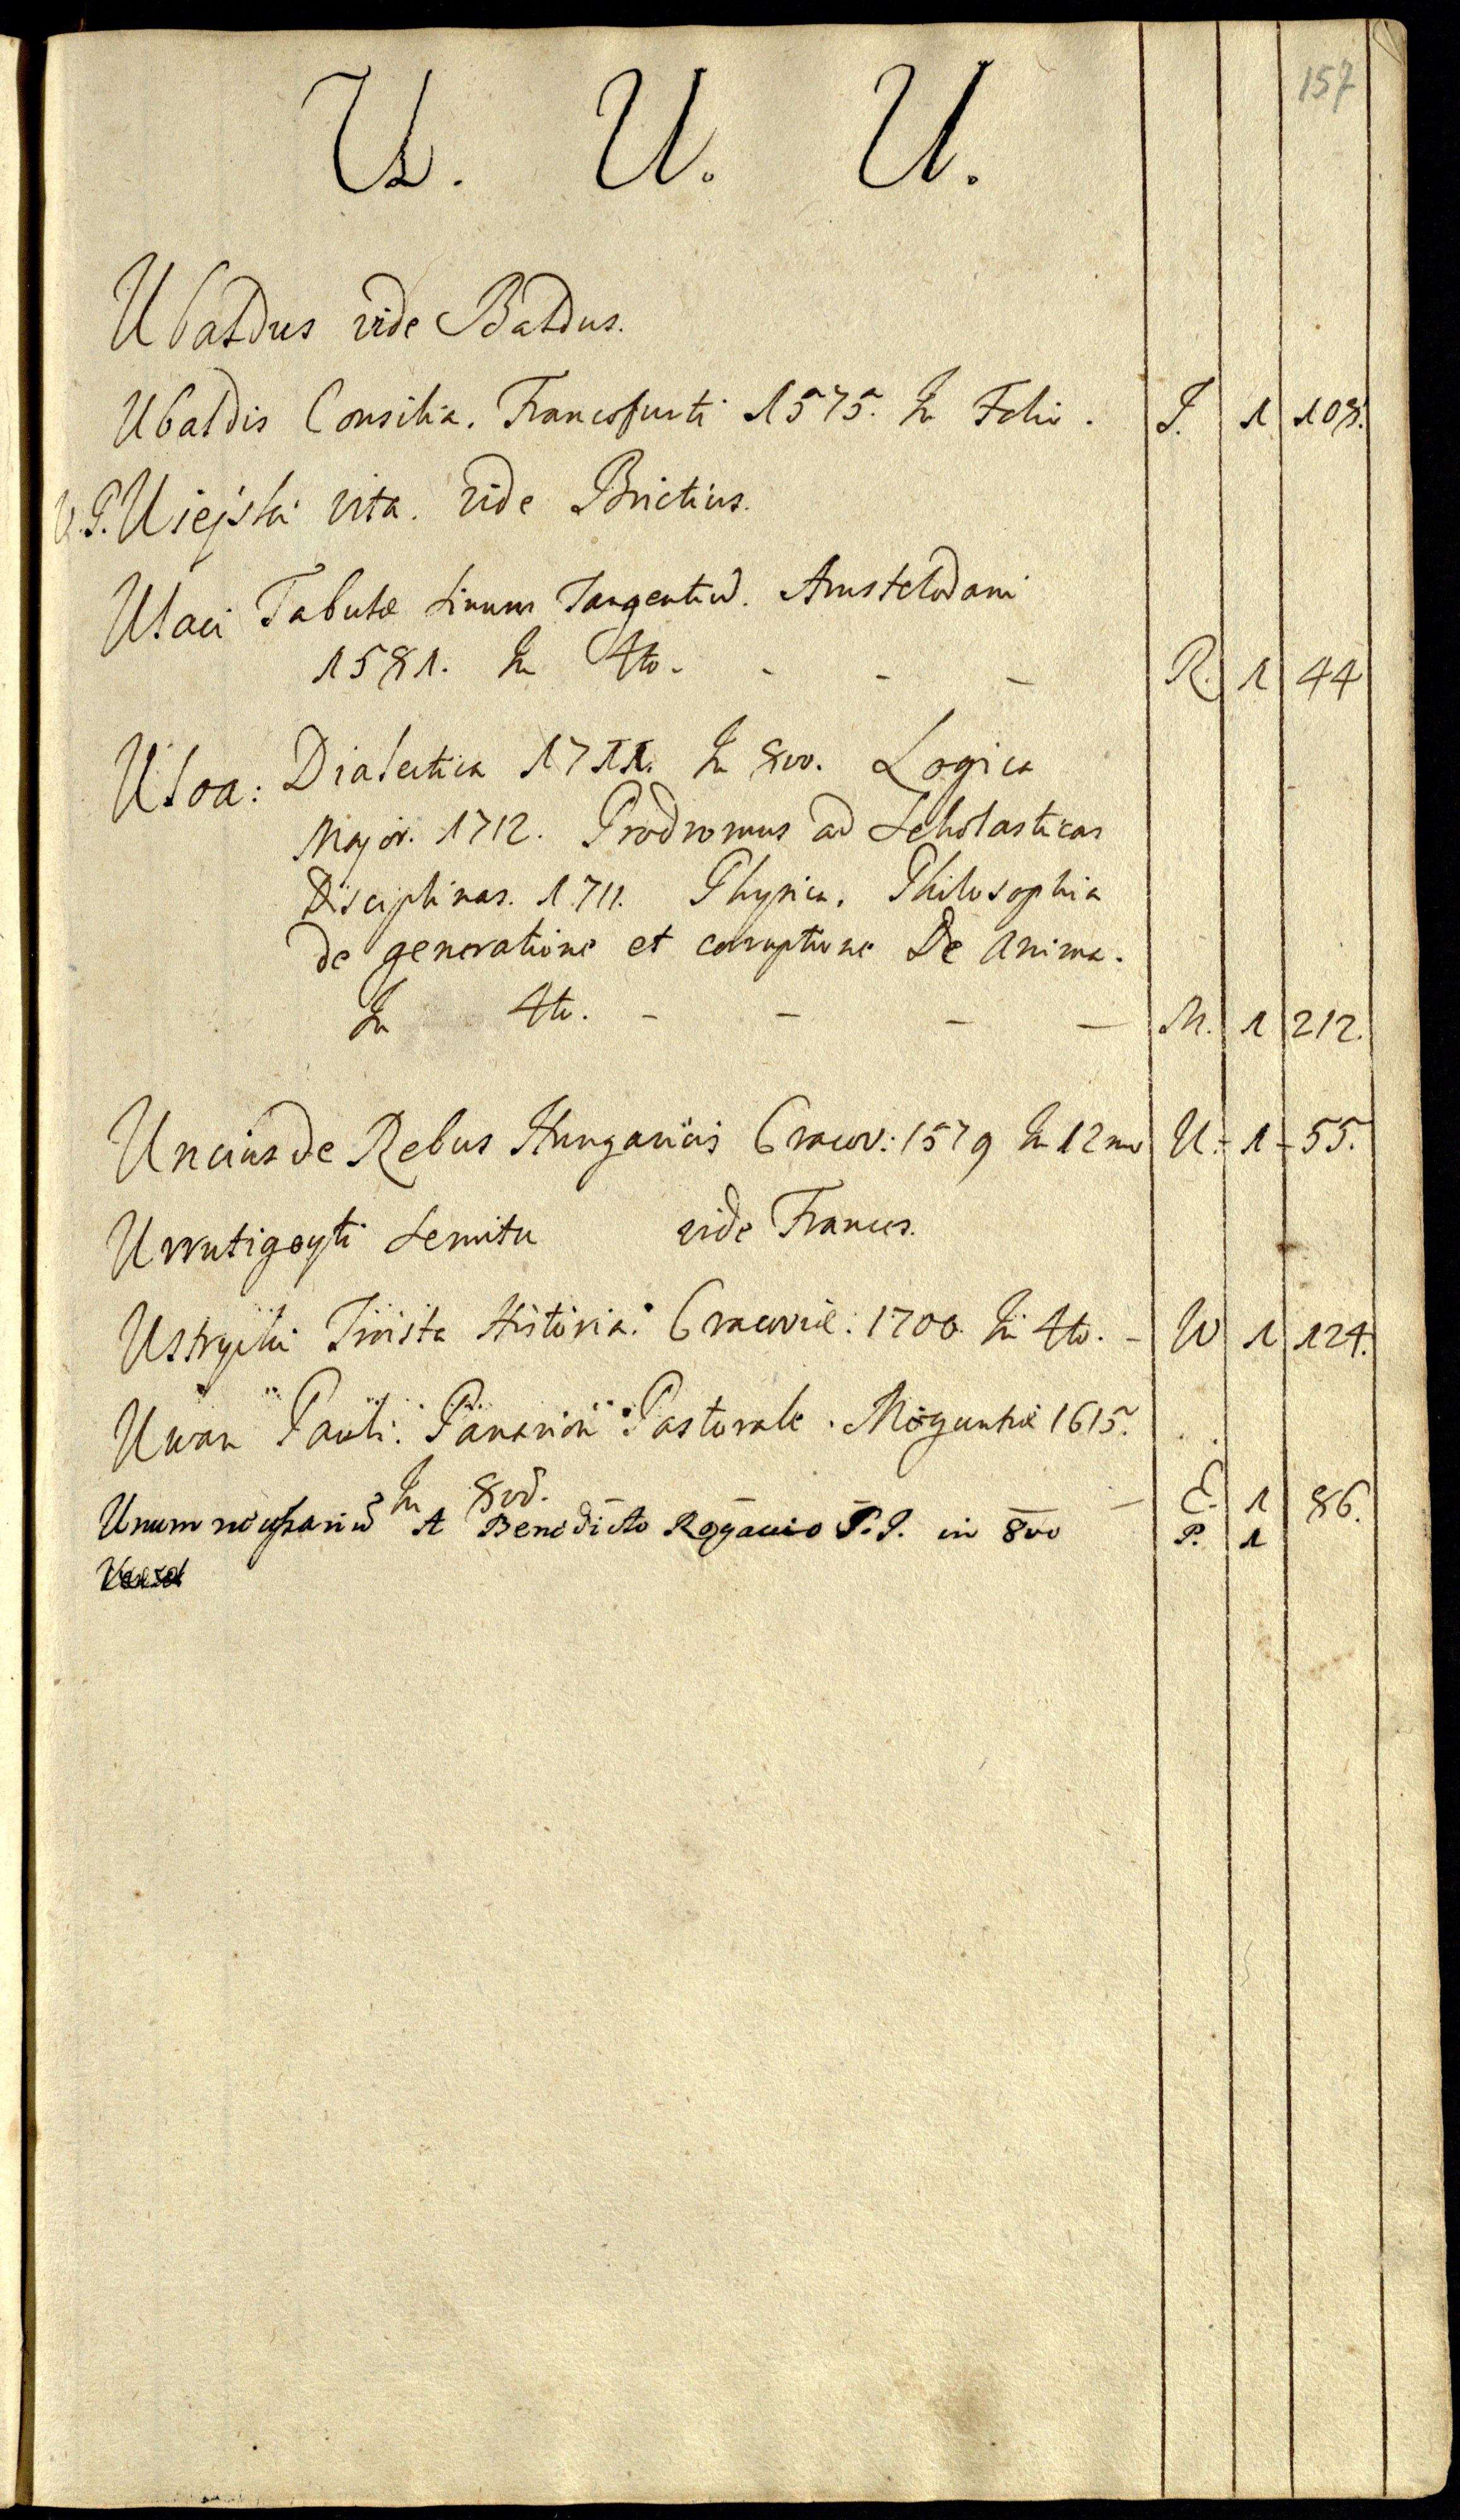 157
U. U. U.
Ubaldus vide Baldus.
Ubaldis Consilia. Francofurti 1575. In Folio. J. 1 108.
V. P. Ujejski vita. vide Brictius.
Ulaci Tabulæ sinuum Tangentiū. Amstelodami
1581. In 4to. - - - R. 1 44
Uloa: Dialectica 1711. In 8vo. Logica
Major. 1712. Prodromus ad Scholasticas
Disciplinas. 1711. Physica. Philosophia
de generatione et corruptione De anima.
In 4to. - - - - M. 1 212.
Uncius de Rebus Hungaricis Cracov: 1579 In 12mo U. - 1 - 55.
Urrutigoyti Semita vide Frances.
Ustrycki Troista Historia. Cracoviæ: 1700. In 4to. - W 1 124.
Uwan Pauli. Panarion Pastorale. Moguntiæ 1615.
In 8vo. - E. 1 86.
Unum necessariū A Benedicto Rogacio S. J. in 8vo P. 1